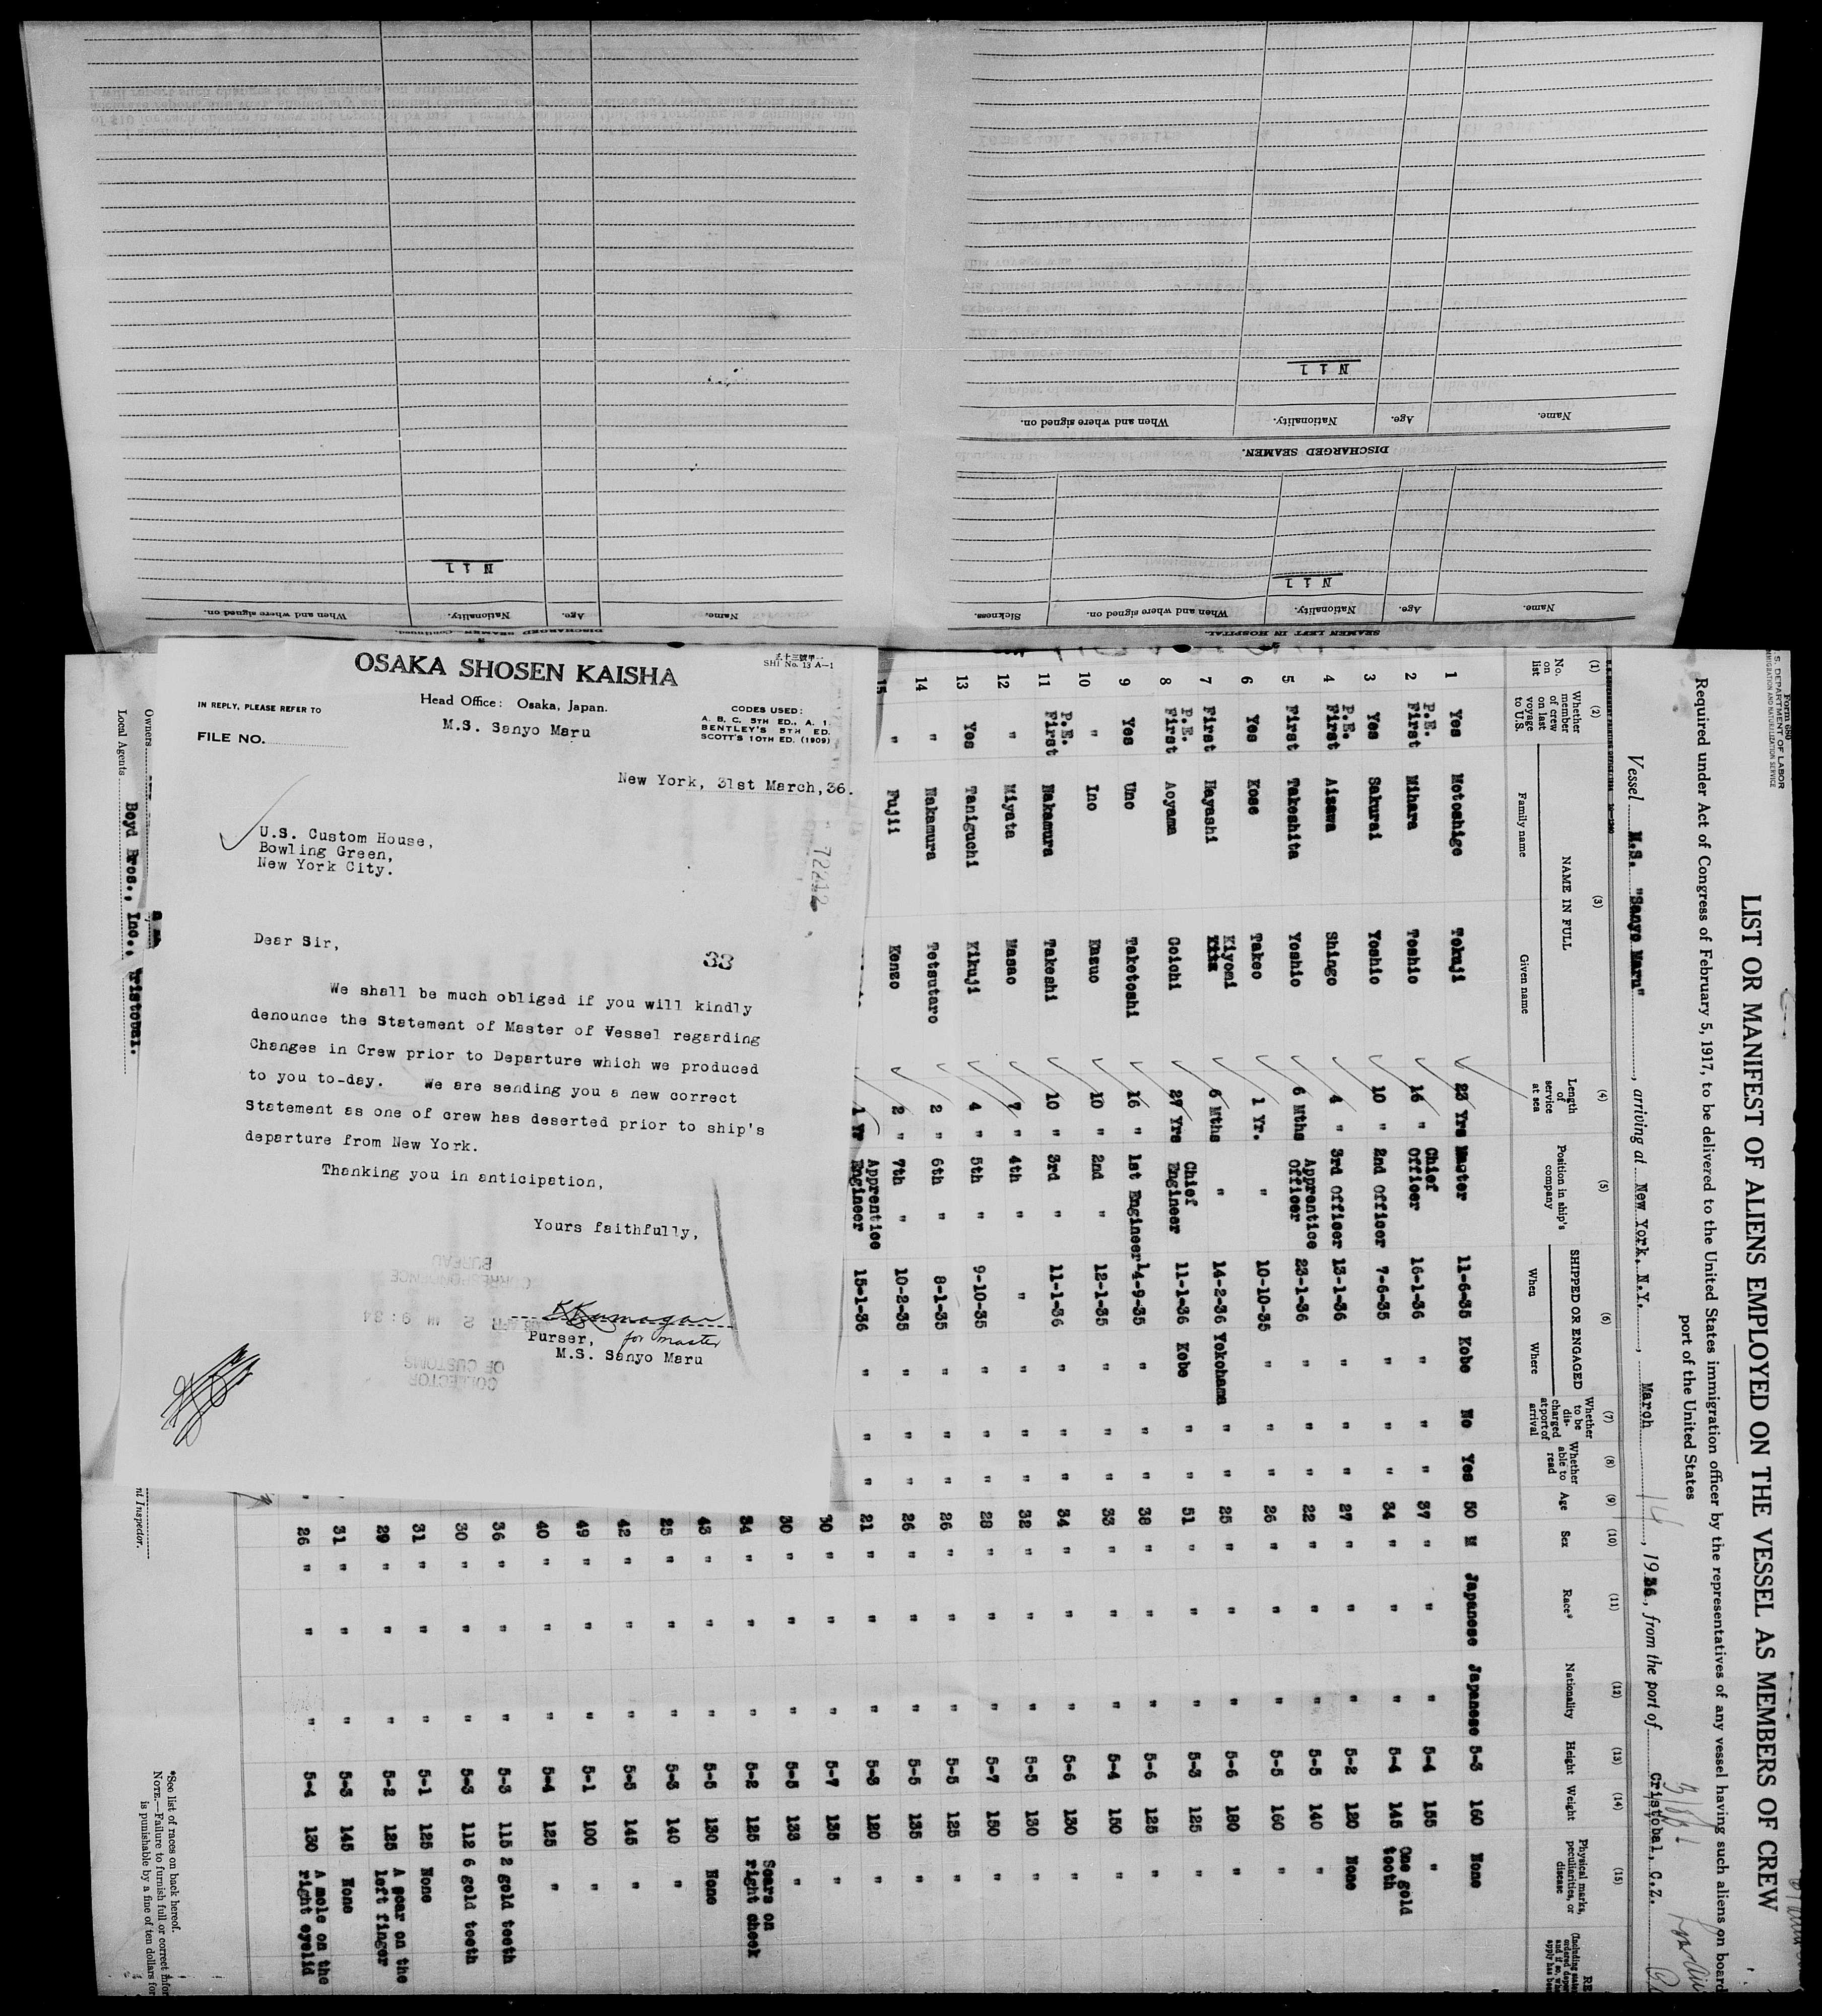 OSAKA SHOSEN KAISHA
SHI No. 13 A-1
Head Office: Osaka, Japan.
M.S. Sanyo Maru
IN REPLY, PLEASE REFER TO
FILE NO.
CODES USED:
A. B. C. 5TH ED., A. 1.
BENTLEY'S 5TH ED.
SCOTT'S 10TH ED. (1909)
New York, 31st March, 36.
U.S. Custom House,
Bowling Green,
New York City.
72212
Dear Sir,
33
We shall be much obliged if you will kindly
denounce the Statement of Master of Vessel regarding
Changes in Crew prior to Departure which we produced
to you to-day. We are sending you a new correct
Statement as one of crew has deserted prior to ship's
departure from New York.
Thanking you in anticipation,
Yours faithfully,
Purser, for master
M.S. Sanyo Maru
COLLECTOR
OF CUSTOMS
CORRESPONDENCE
BUREAU
U.S. DEPARTMENT OF LABOR
IMMIGRATION AND NATURALIZATION SERVICE
LIST OR MANIFEST OF ALIENS EMPLOYED ON THE VESSEL AS MEMBERS OF CREW
Required under Act of Congress of February 5, 1917, to be delivered to the United States immigration officer by the representatives of any vessel having such aliens on board
port of the United States
Vessel M.S. "Sanyo Maru", arriving at New York, N.Y., March 14, 1936, from the port of Cristobal, C.Z.
(1) (2) (3) (4) (5) (6) (7) (8) (9) (10) (11) (12) (13) (14) (15)
No. on list
Whether member of crew on last voyage to U.S.
NAME IN FULL
Family name
Given name
Length of service at sea
Position in ship's company
SHIPPED OR ENGAGED
When
Where
Whether to be discharged at port of arrival
Whether able to read
Age
Sex
Race*
Nationality
Height
Weight
Physical marks, peculiarities, or disease
1 Yes Motoshige Tokuji 23 Yrs Master 11-6-35 Kobe No Yes 50 M Japanese Japanese 5-3 160 None
2 P.E. First Mihara Toshio 16 " Chief Officer 16-1-36 " " " 37 " " " 5-4 155 "
3 Yes Sakurai Yoshio 10 " 2nd Officer 7-6-35 " " " 34 " " " 5-4 145 One gold tooth
4 P.E. First Aisawa Shingo 4 " 3rd Officer 13-1-36 " " " 27 " " " 5-2 120 None
5 First Takeshita Yoshio 6 Mths Apprentice Officer 23-1-36 " " " 22 " " " 5-5 140 "
6 Yes Kose Takeo 1 Yr. " 10-10-35 " " " 26 " " " 5-5 160 "
7 First Hayashi Kiyomi 6 Mths " 14-2-36 Yokohama " " 25 " " " 5-6 180 "
8 P.E. First Aoyama Goichi 27 Yrs Chief Engineer 11-1-36 Kobe " " 51 " " " 5-3 125 "
9 Yes Uno Taketoshi 16 " 1st Engineer 14-9-35 " " " 38 " " " 5-6 125 "
10 " Ino Kazuo 10 " 2nd " 12-1-35 " " " 33 " " " 5-4 150 "
11 P.E. First Nakamura Takeshi 10 " 3rd " 11-1-36 " " " 34 " " " 5-6 130 "
12 " Miyata Masao 7 " 4th " " " " " 32 " " " 5-5 130 "
13 Yes Taniguchi Kikuji 4 " 5th " 9-10-35 " " " 28 " " " 5-7 150 "
14 " Nakamura Tetsutaro 2 " 6th " 8-1-35 " " " 26 " " " 5-5 125 "
15 " Fujii Kenzo 2 " 7th " 10-2-35 " " " 26 " " " 5-5 135 "
1 Yr Apprentice Engineer 15-1-36 " " " 21 " " " 5-3 120 "
30 " " " 5-7 135 "
30 " " " 5-5 133 "
34 " " " 5-2 125 Scars on right cheek
43 " " " 5-5 130 None
25 " " " 5-3 140 "
42 " " " 5-5 145 "
49 " " " 5-1 100 "
40 " " " 5-4 125 "
36 " " " 5-3 115 2 gold teeth
30 " " " 5-3 112 6 gold teeth
31 " " " 5-1 125 None
29 " " " 5-2 125 A scar on the left finger
31 " " " 5-3 145 None
26 " " " 5-4 130 A mole on the right eyelid
Owners
Local Agents Boyd Bros., Inc., Cristobal.
nt Inspector.
*See list of races on back hereof.
NOTE.—Failure to furnish full or correct infor
is punishable by a fine of ten dollars for
SEAMEN LEFT IN HOSPITAL.
Name. Age. Nationality. When and where signed on. Sickness.
Nil
DISCHARGED SEAMEN.
Name. Age. Nationality. When and where signed on.
Nil
DISCHARGED SEAMEN—Continued.
Name. Age. Nationality. When and where signed on.
Nil